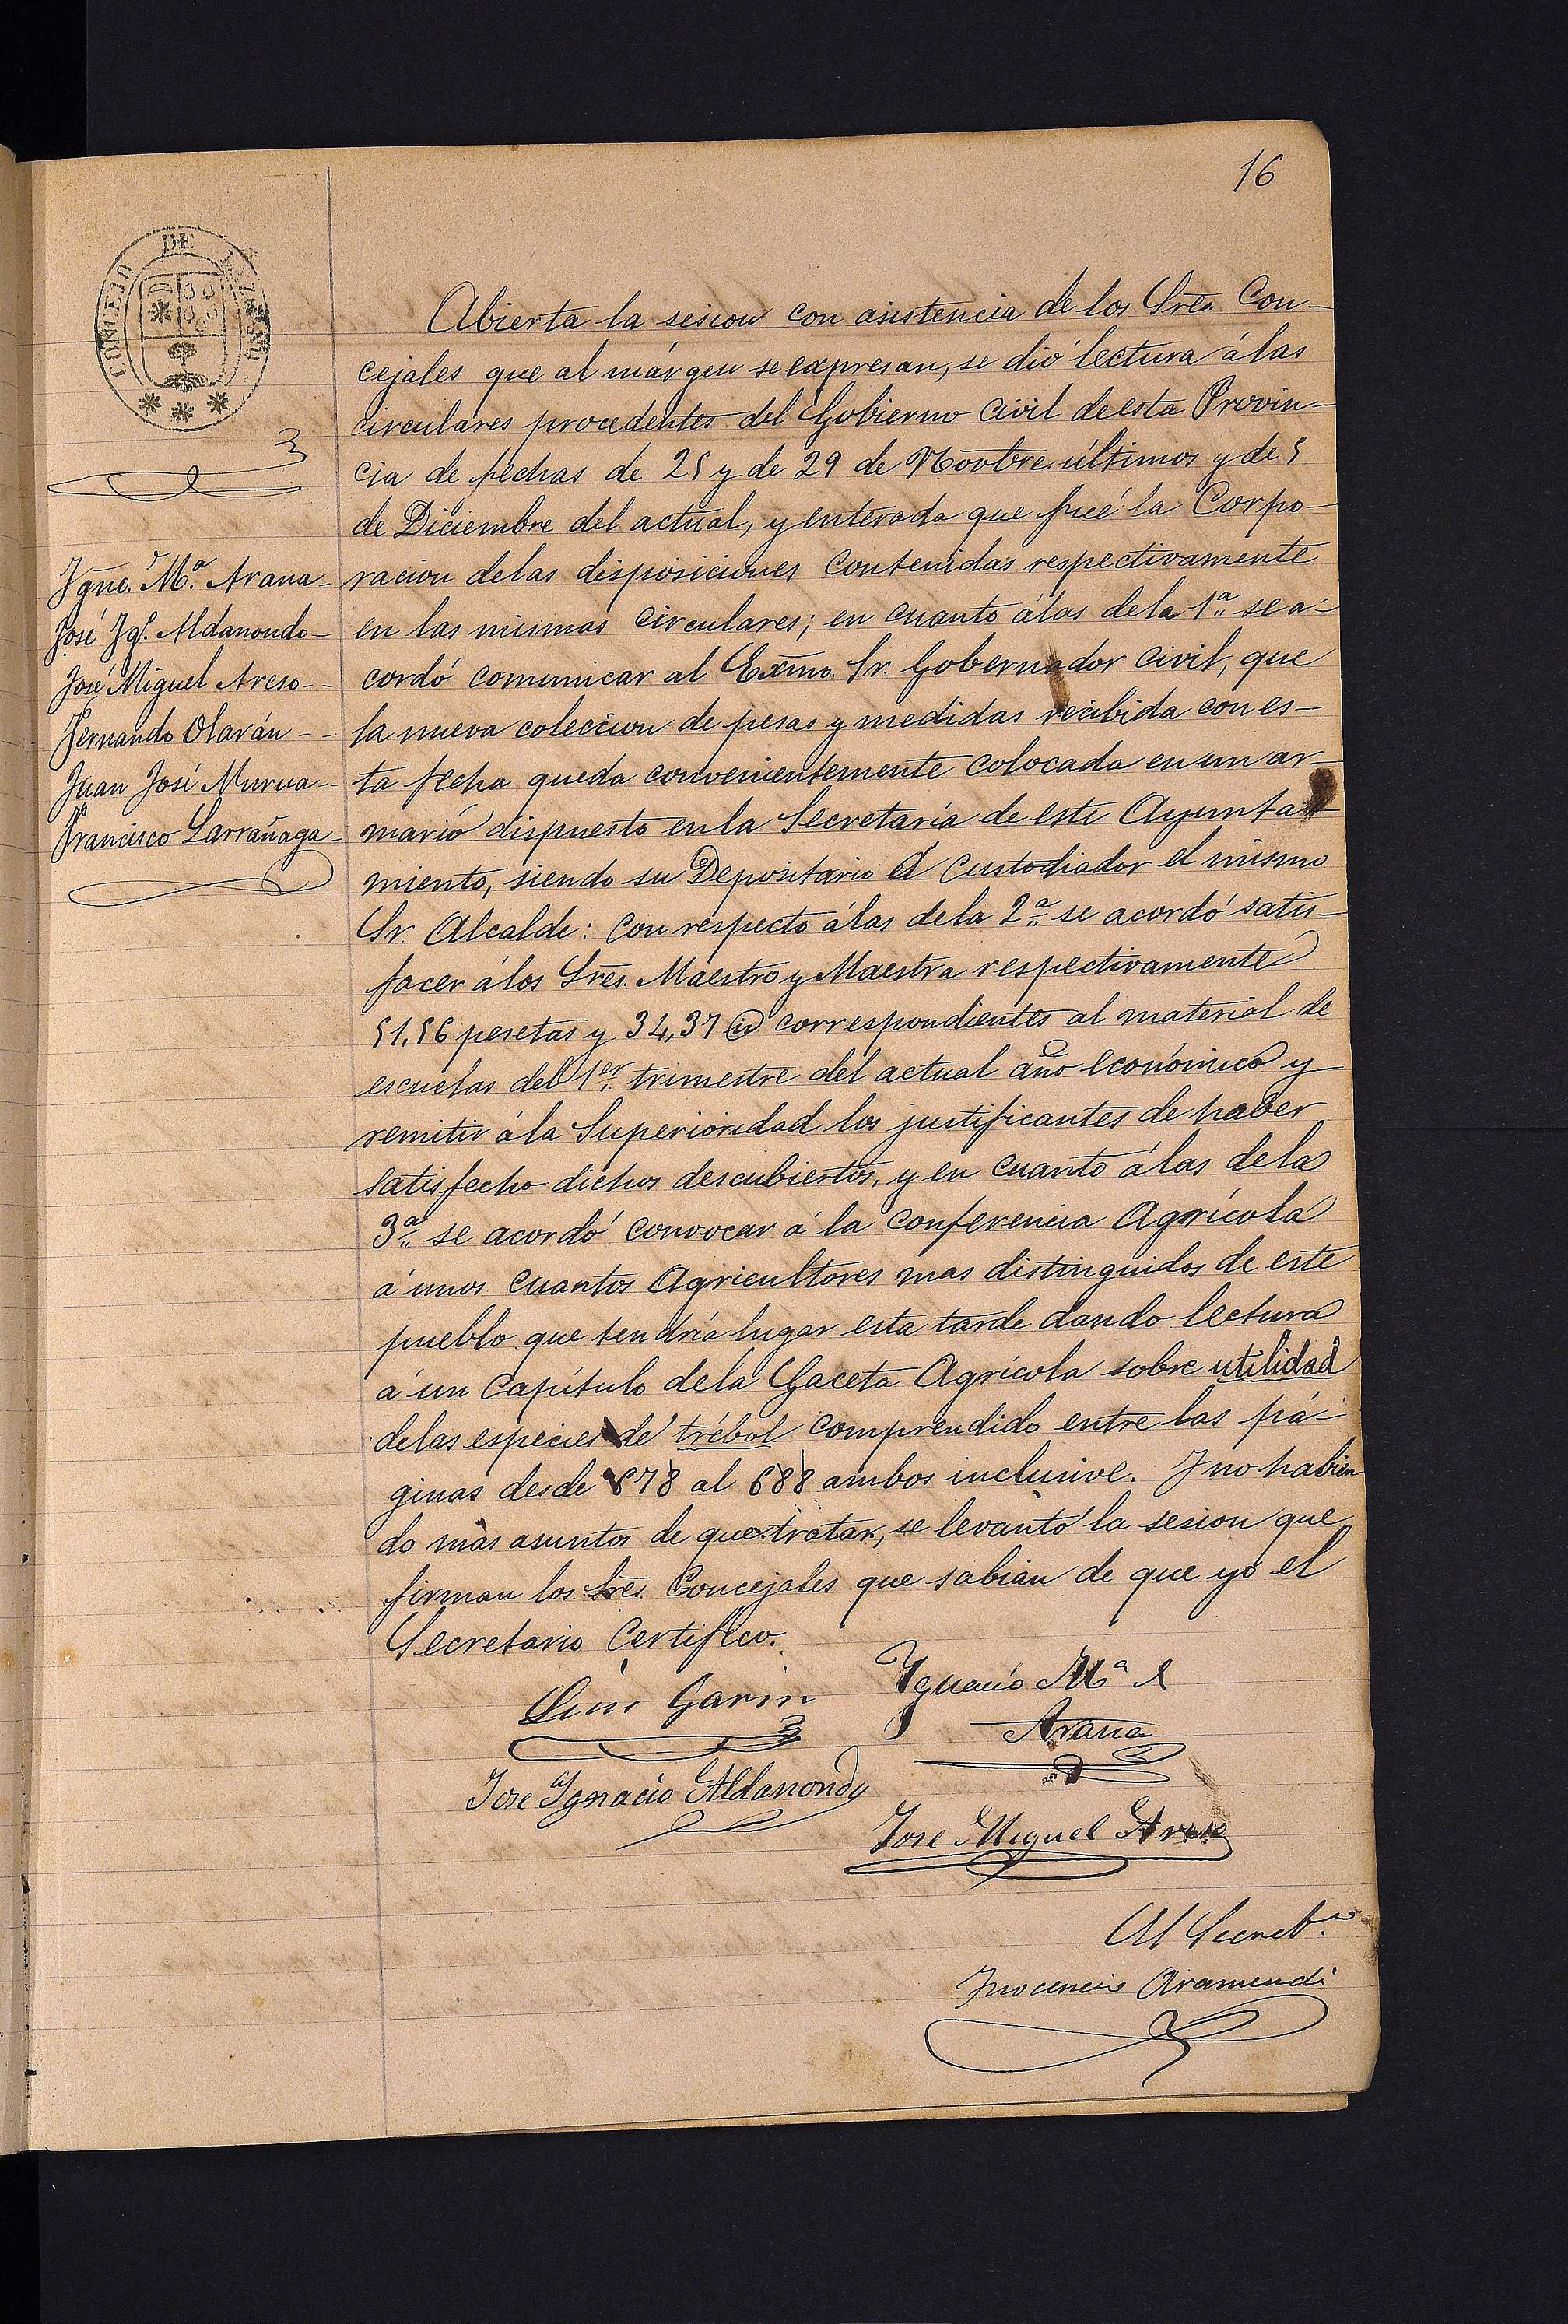 16
CONCEJO DE
Abierta la sesion con asistencia de los Sres. Con-
cejales que al márgen se expresan, se dió lectura á las
circulares procedentes del Gobierno Civil de esta Provin-
cia de fechas de 25 y de 29 de Novbre. últimos y de 5
de Diciembre del actual, y enterada que fué la Corpo-
racion de las disposiciones contenidas respectivamente
en las mismas circulares; en cuanto á las de la 1ª se a-
cordó comunicar al Exmo. Sr. Gobernador civil, que
la nueva coleccion de pesas y medidas recibida con es-
ta fecha queda convenientemente colocada en un ar-
mario dispuesto en la Secretaría de este Ayunta-
miento, siendo su Depositario el Custodiador el mismo
Sr. Alcalde: con respecto á las de la 2ª se acordó satis-
facer á los Sres. Maestro y Maestra respectivamente
51,56 pesetas y 34,37 id correspondientes al material de
escuelas del 1er trimestre del actual año económico y
remitir á la Superioridad los justificantes de haber
satisfecho dichos descubiertos, y en cuanto á las de la
3ª se acordó convocar á la conferencia Agrícola
á unos cuantos Agricultores mas distinguidos de este
pueblo que tendría lugar esta tarde dando lectura
á un Capítulo de la Gaceta Agrícola sobre utilidad
de las especies de trébol comprendido entre las pá-
ginas desde 678 al 688 ambos inclusive. Y no habien
do más asuntos de que tratar, se levantó la sesion que
firman los Sres. Concejales que sabian de que yo el
Secretario Certifico.
Igno. Mª. Arana
José Igº. Aldanondo
José Miguel Areso
Fernando Olarán
Juan José Murua
Francisco Larrañaga
Luis Garin
Ignacio Mª de
Arana
Jose Ignacio Aldanondo
Jose Miguel Areso
El Secretº.
Inocencio Aramendi